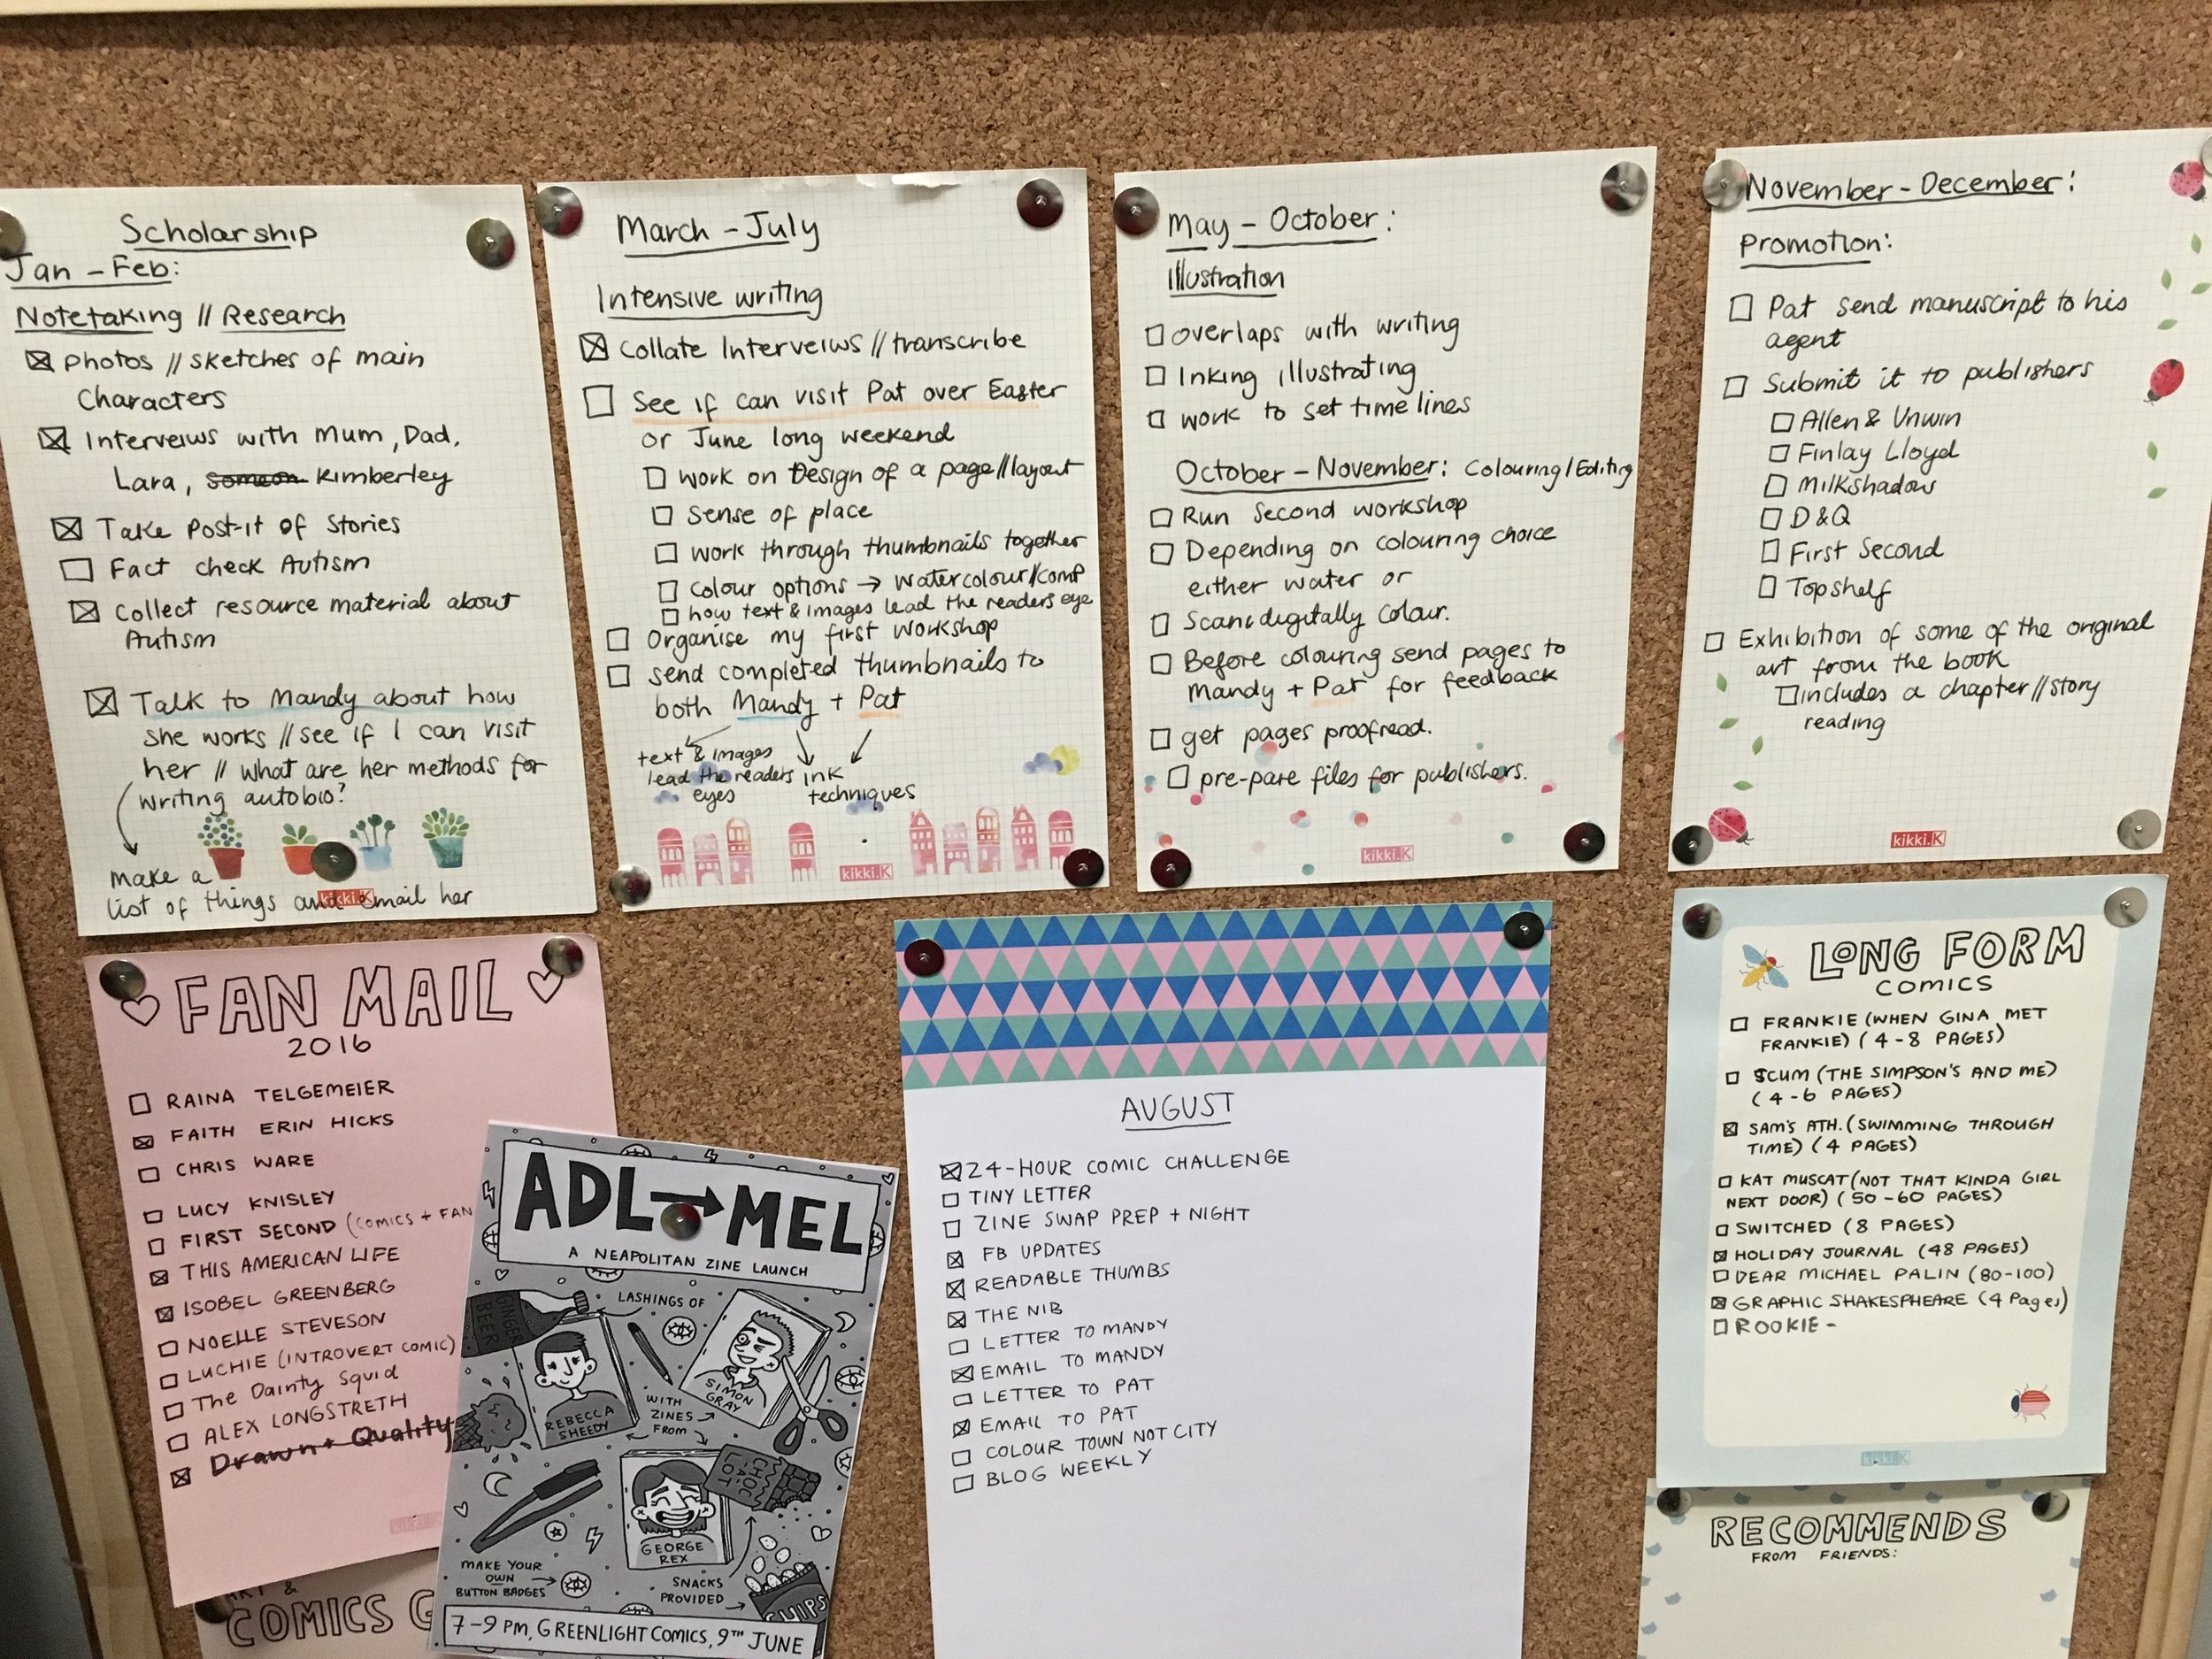 Scholarship
Jan - Feb:
Notetaking // Research
Photos // sketches of main
Characters
Interveiws with Mum, Dad,
Lara, someon Kimberley
Take Post-it of Stories
Fact check Autism
Collect resource material about
Autism
Talk to Mandy about how
she works // see if I can visit
her // What are her methods for
writing autobio?
make a
list of things and email her
kikki.K
March - July
Intensive writing
Collate Interveiws // transcribe
See if can visit Pat over Easter
or June long weekend
work on Design of a page//layout
sense of place
work through thumbnails together
Colour options → Watercolour/comp
how text & images lead the readers eye
Organise my first workshop
send completed thumbnails to
both Mandy + Pat
text & images
lead the readers
eyes
ink
techniques
kikki.K
May - October:
Illustration
overlaps with writing
Inking illustrating
work to set time lines
October - November: Colouring/Editing
Run Second workshop
Depending on colouring choice
either water or
Scan & digitally Colour.
Before colouring send pages to
Mandy + Pat for feedback
get pages proofread.
pre-pare files for publishers.
kikki.K
November - December:
Promotion:
Pat send manuscript to his
agent
Submit it to publishers
Allen & Unwin
Finlay Lloyd
Milkshadow
D&Q
First Second
Topshelf
Exhibition of some of the original
art from the book
includes a chapter//story
reading
kikki.K
FAN MAIL
2016
RAINA TELGEMEIER
FAITH ERIN HICKS
CHRIS WARE
LUCY KNISLEY
FIRST SECOND (COMICS + FAN
THIS AMERICAN LIFE
ISOBEL GREENBERG
NOELLE STEVESON
LUCHIE (INTROVERT COMIC)
The Dainty Squid
ALEX LONGSTRETH
Drawn + Quality
kikki.K
&
COMICS
ADL→MEL
A NEAPOLITAN ZINE LAUNCH
LASHINGS OF
GINGER
BEER
REBECCA
SHEEDY
WITH
ZINES
FROM
SIMON
GRAY
GEORGE
REX
CHOC
OLAT
MAKE YOUR
OWN
BUTTON BADGES
SNACKS
PROVIDED
CHIPS
7-9 PM, GREENLIGHT COMICS, 9TH JUNE
AUGUST
24-HOUR COMIC CHALLENGE
TINY LETTER
ZINE SWAP PREP + NIGHT
FB UPDATES
READABLE THUMBS
THE NIB
LETTER TO MANDY
EMAIL TO MANDY
LETTER TO PAT
EMAIL TO PAT
COLOUR TOWN NOT CITY
BLOG WEEKLY
LONG FORM
COMICS
FRANKIE (WHEN GINA MET
FRANKIE) (4-8 PAGES)
SCUM (THE SIMPSON'S AND ME)
(4-6 PAGES)
SAM'S ATH. (SWIMMING THROUGH
TIME) (4 PAGES)
KAT MUSCAT (NOT THAT KINDA GIRL
NEXT DOOR) (50-60 PAGES)
SWITCHED (8 PAGES)
HOLIDAY JOURNAL (48 PAGES)
DEAR MICHAEL PALIN (80-100)
GRAPHIC SHAKESPHEARE (4 Pages)
ROOKIE -
kikki.K
RECOMMENDS
FROM FRIENDS: